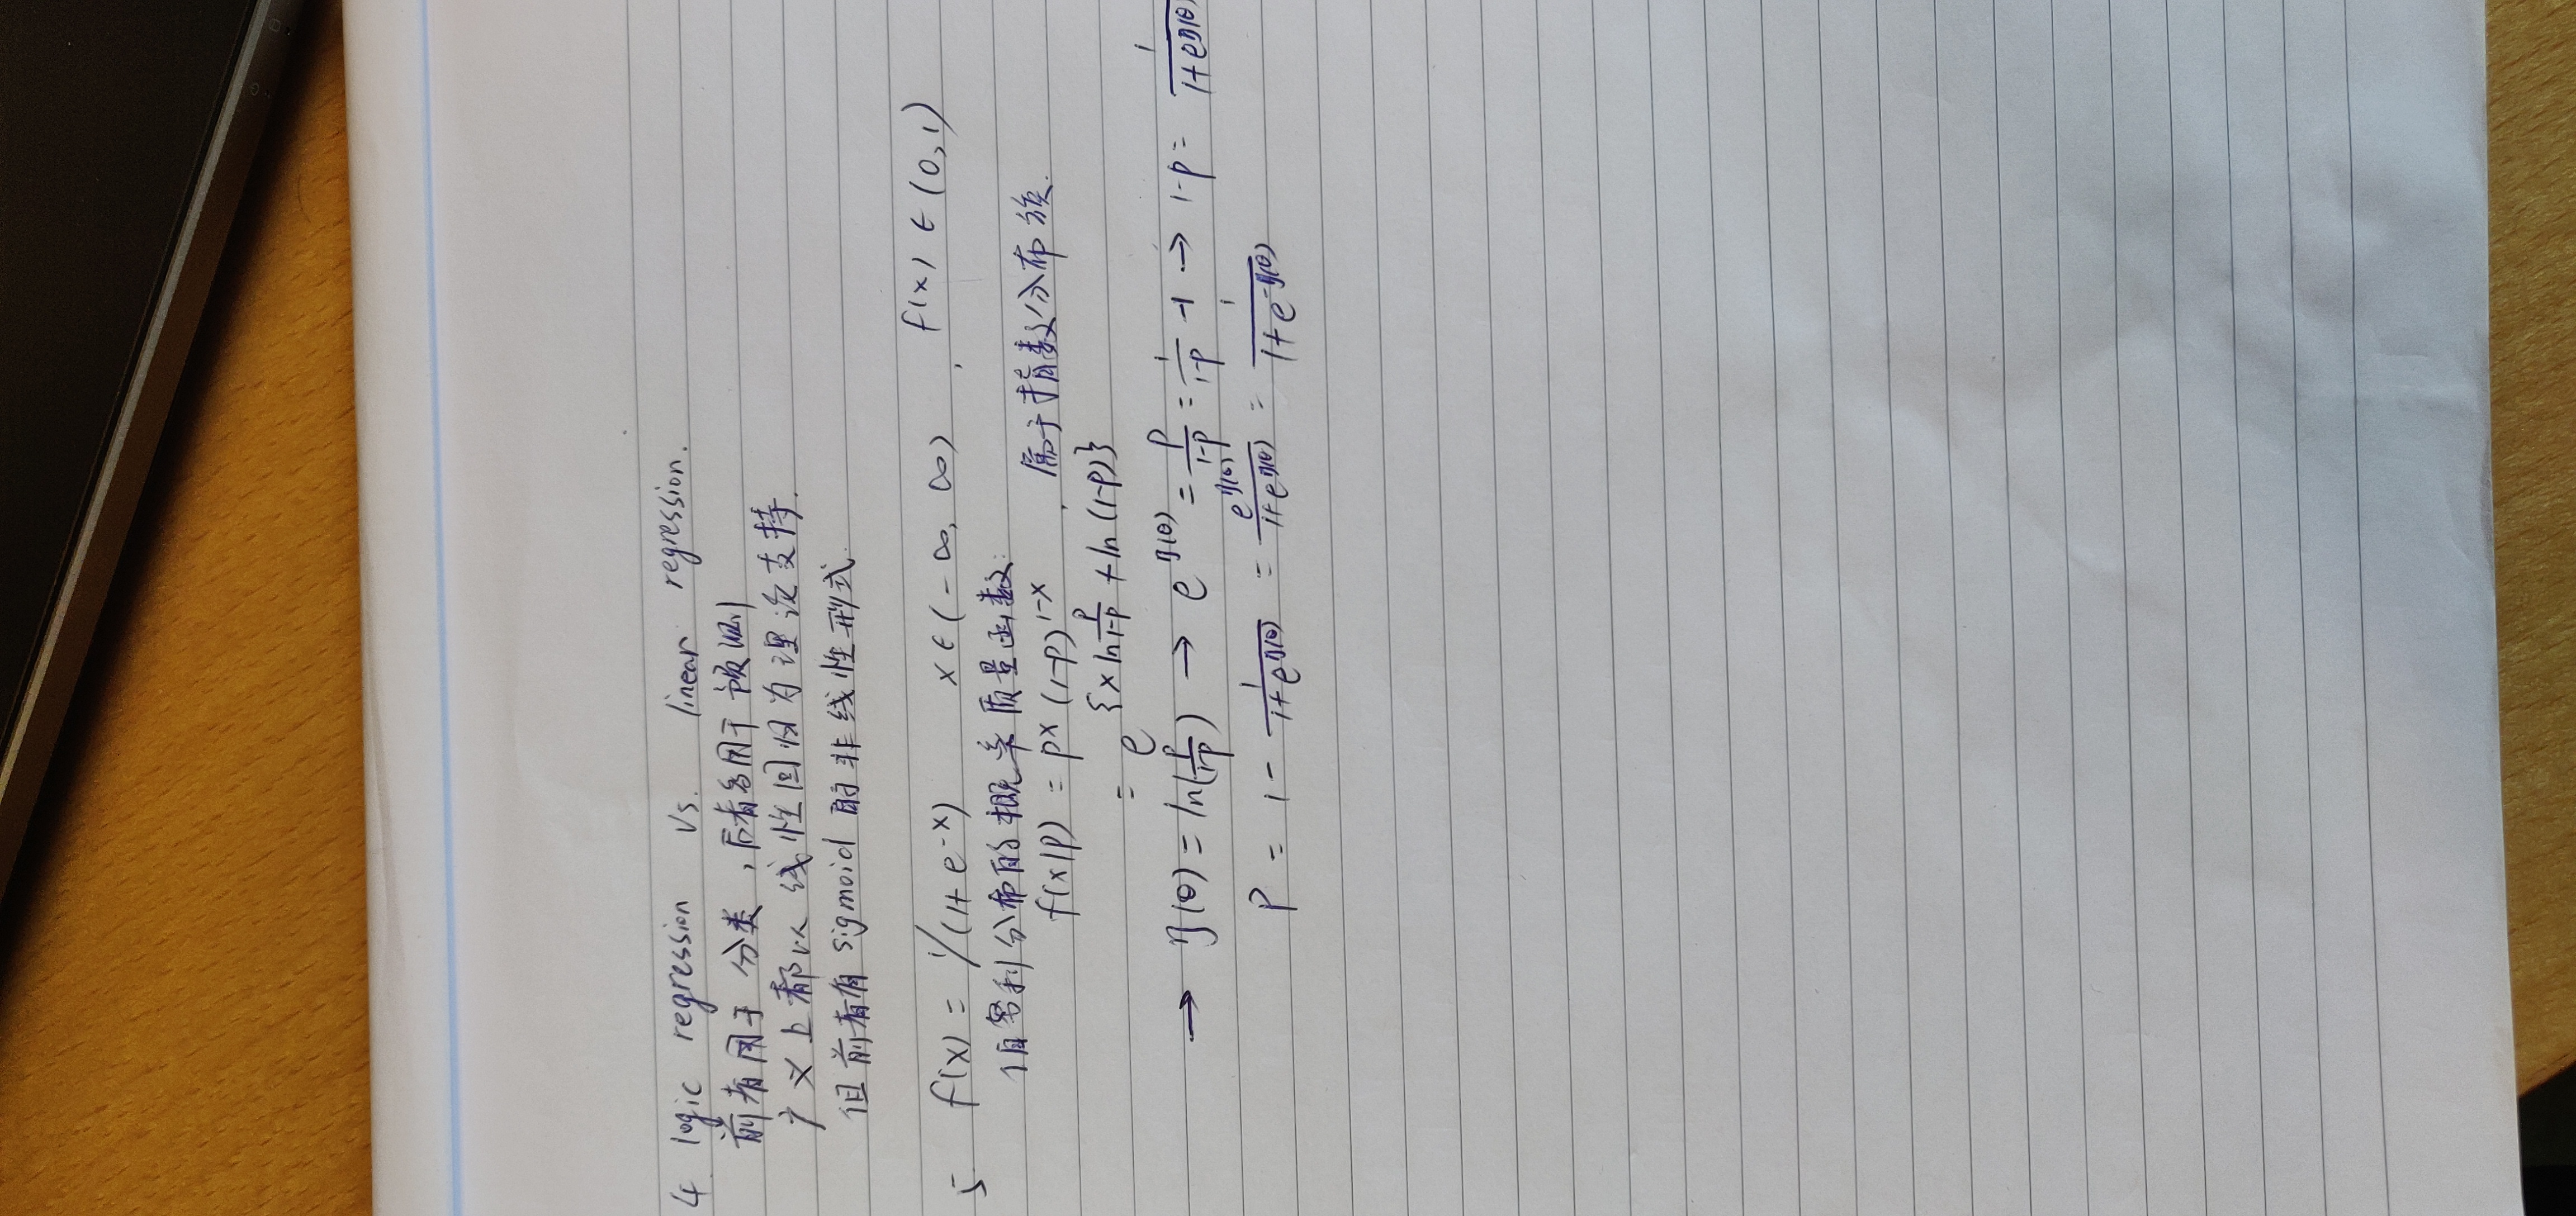 4. logic regression vs. linear regression.
前者用于分类，后者多用于预测
广义上都以线性回归为理论支持.
但前者有 sigmoid 的非线性形式.
5 f(x) = 1/(1+e^{-x}) x∈(-∞, ∞), f(x)∈(0,1)
伯努利分布的概率质量函数:
f(x|p) = px(1-p)^{1-x}, 属于指数分布族.
= e^{{x ln \frac{p}{1-p} + ln(1-p)}}
→ η(θ) = ln(\frac{p}{1-p}) → e^{η(θ)} = \frac{p}{1-p} = \frac{1}{1-p} -1 → 1-p = \frac{1}{1+e^{η(θ)}}
p = 1 - \frac{1}{1+e^{η(θ)}} = \frac{e^{η(θ)}}{1+e^{η(θ)}} = \frac{1}{1+e^{-η(θ)}}